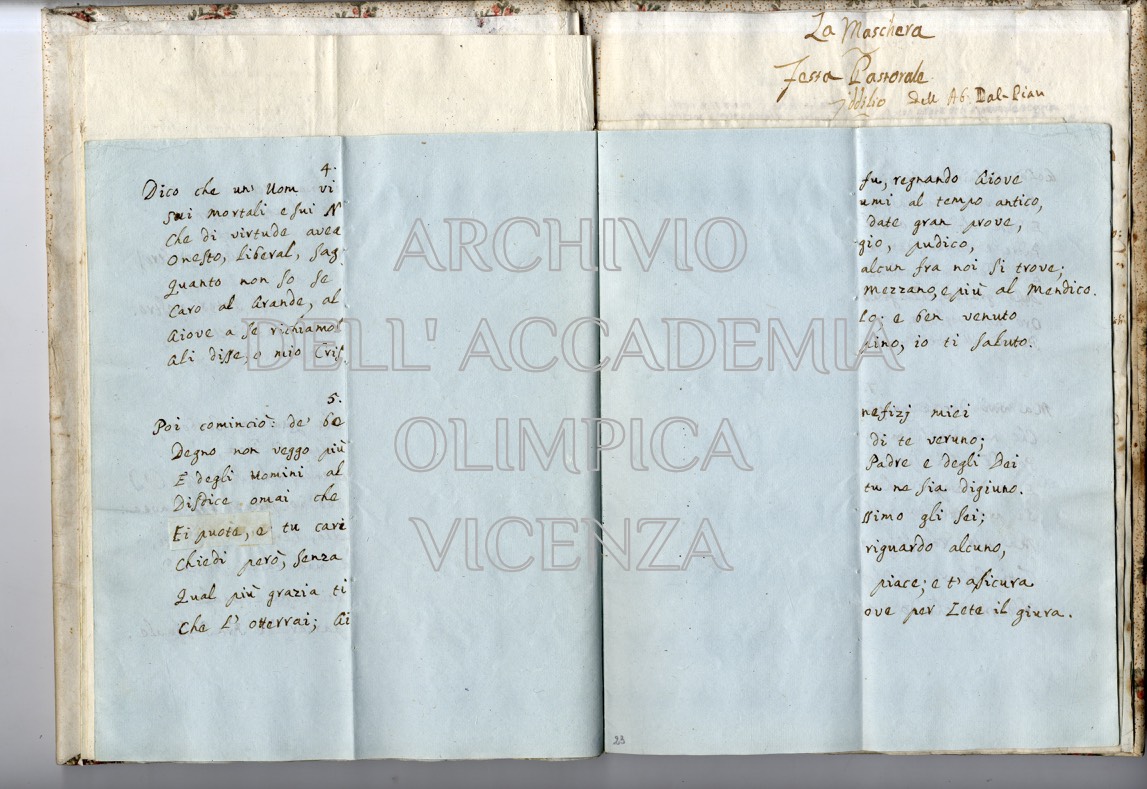 La Maschera
Festa Pastorale
Idilio dell Ab. Dal-Pian
4.
Dico che un' Uom vi fu, regnando Giove
Sui mortali e sui Numi al tempo antico,
Che di virtude avea date gran prove,
Onesto, liberal, saggio, pudico,
Quanto non so se alcun fra noi si trove;
Caro al Grande, al Mezzano, e più al Mendico.
Giove a se richiamollo; e ben venuto
Gli disse, o mio Crispino, io ti saluto.
5.
Poi cominciò: de' benefizj miei
Degno non veggo più di te veruno;
E degli Uomini al Padre e degli Dei
Disdice omai che tu ne sia digiuno.
Ei puote, e tu carissimo gli sei;
Chiedi però, senza riguardo alcuno,
Qual più grazia ti piace; e t'assicura
Che l'otterrai; Giove per Lete il giura.
23
ARCHIVIO
DELL' ACCADEMIA
OLIMPICA
VICENZA